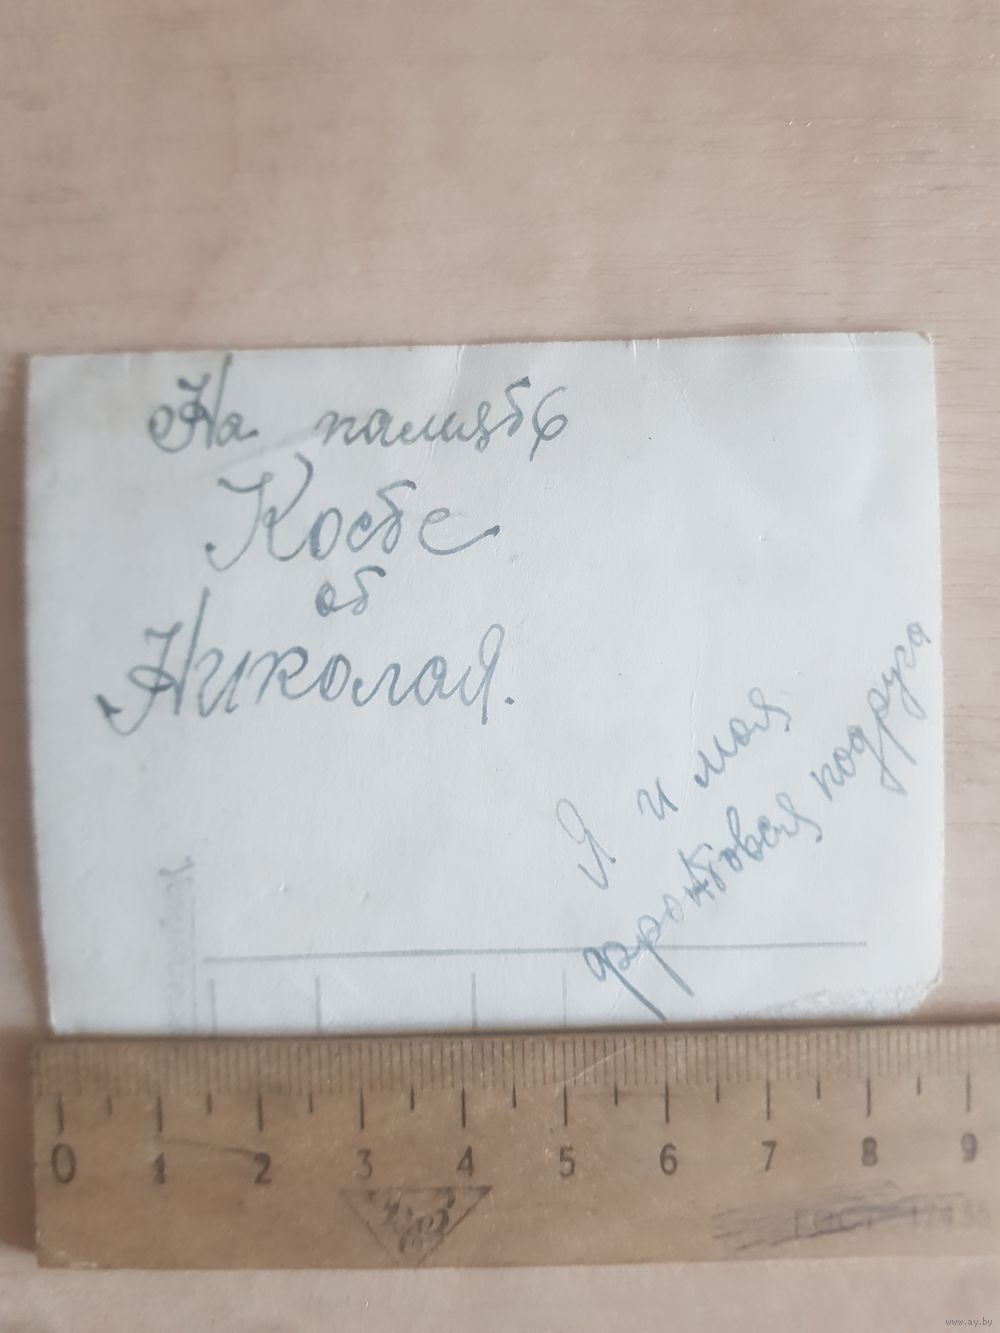 На память
Косте
от
Николая.
Я и моя
фронтовая подруга
0 1 2 3 4 5 6 7 8 9
ГОСТ 17435
www.ay.by